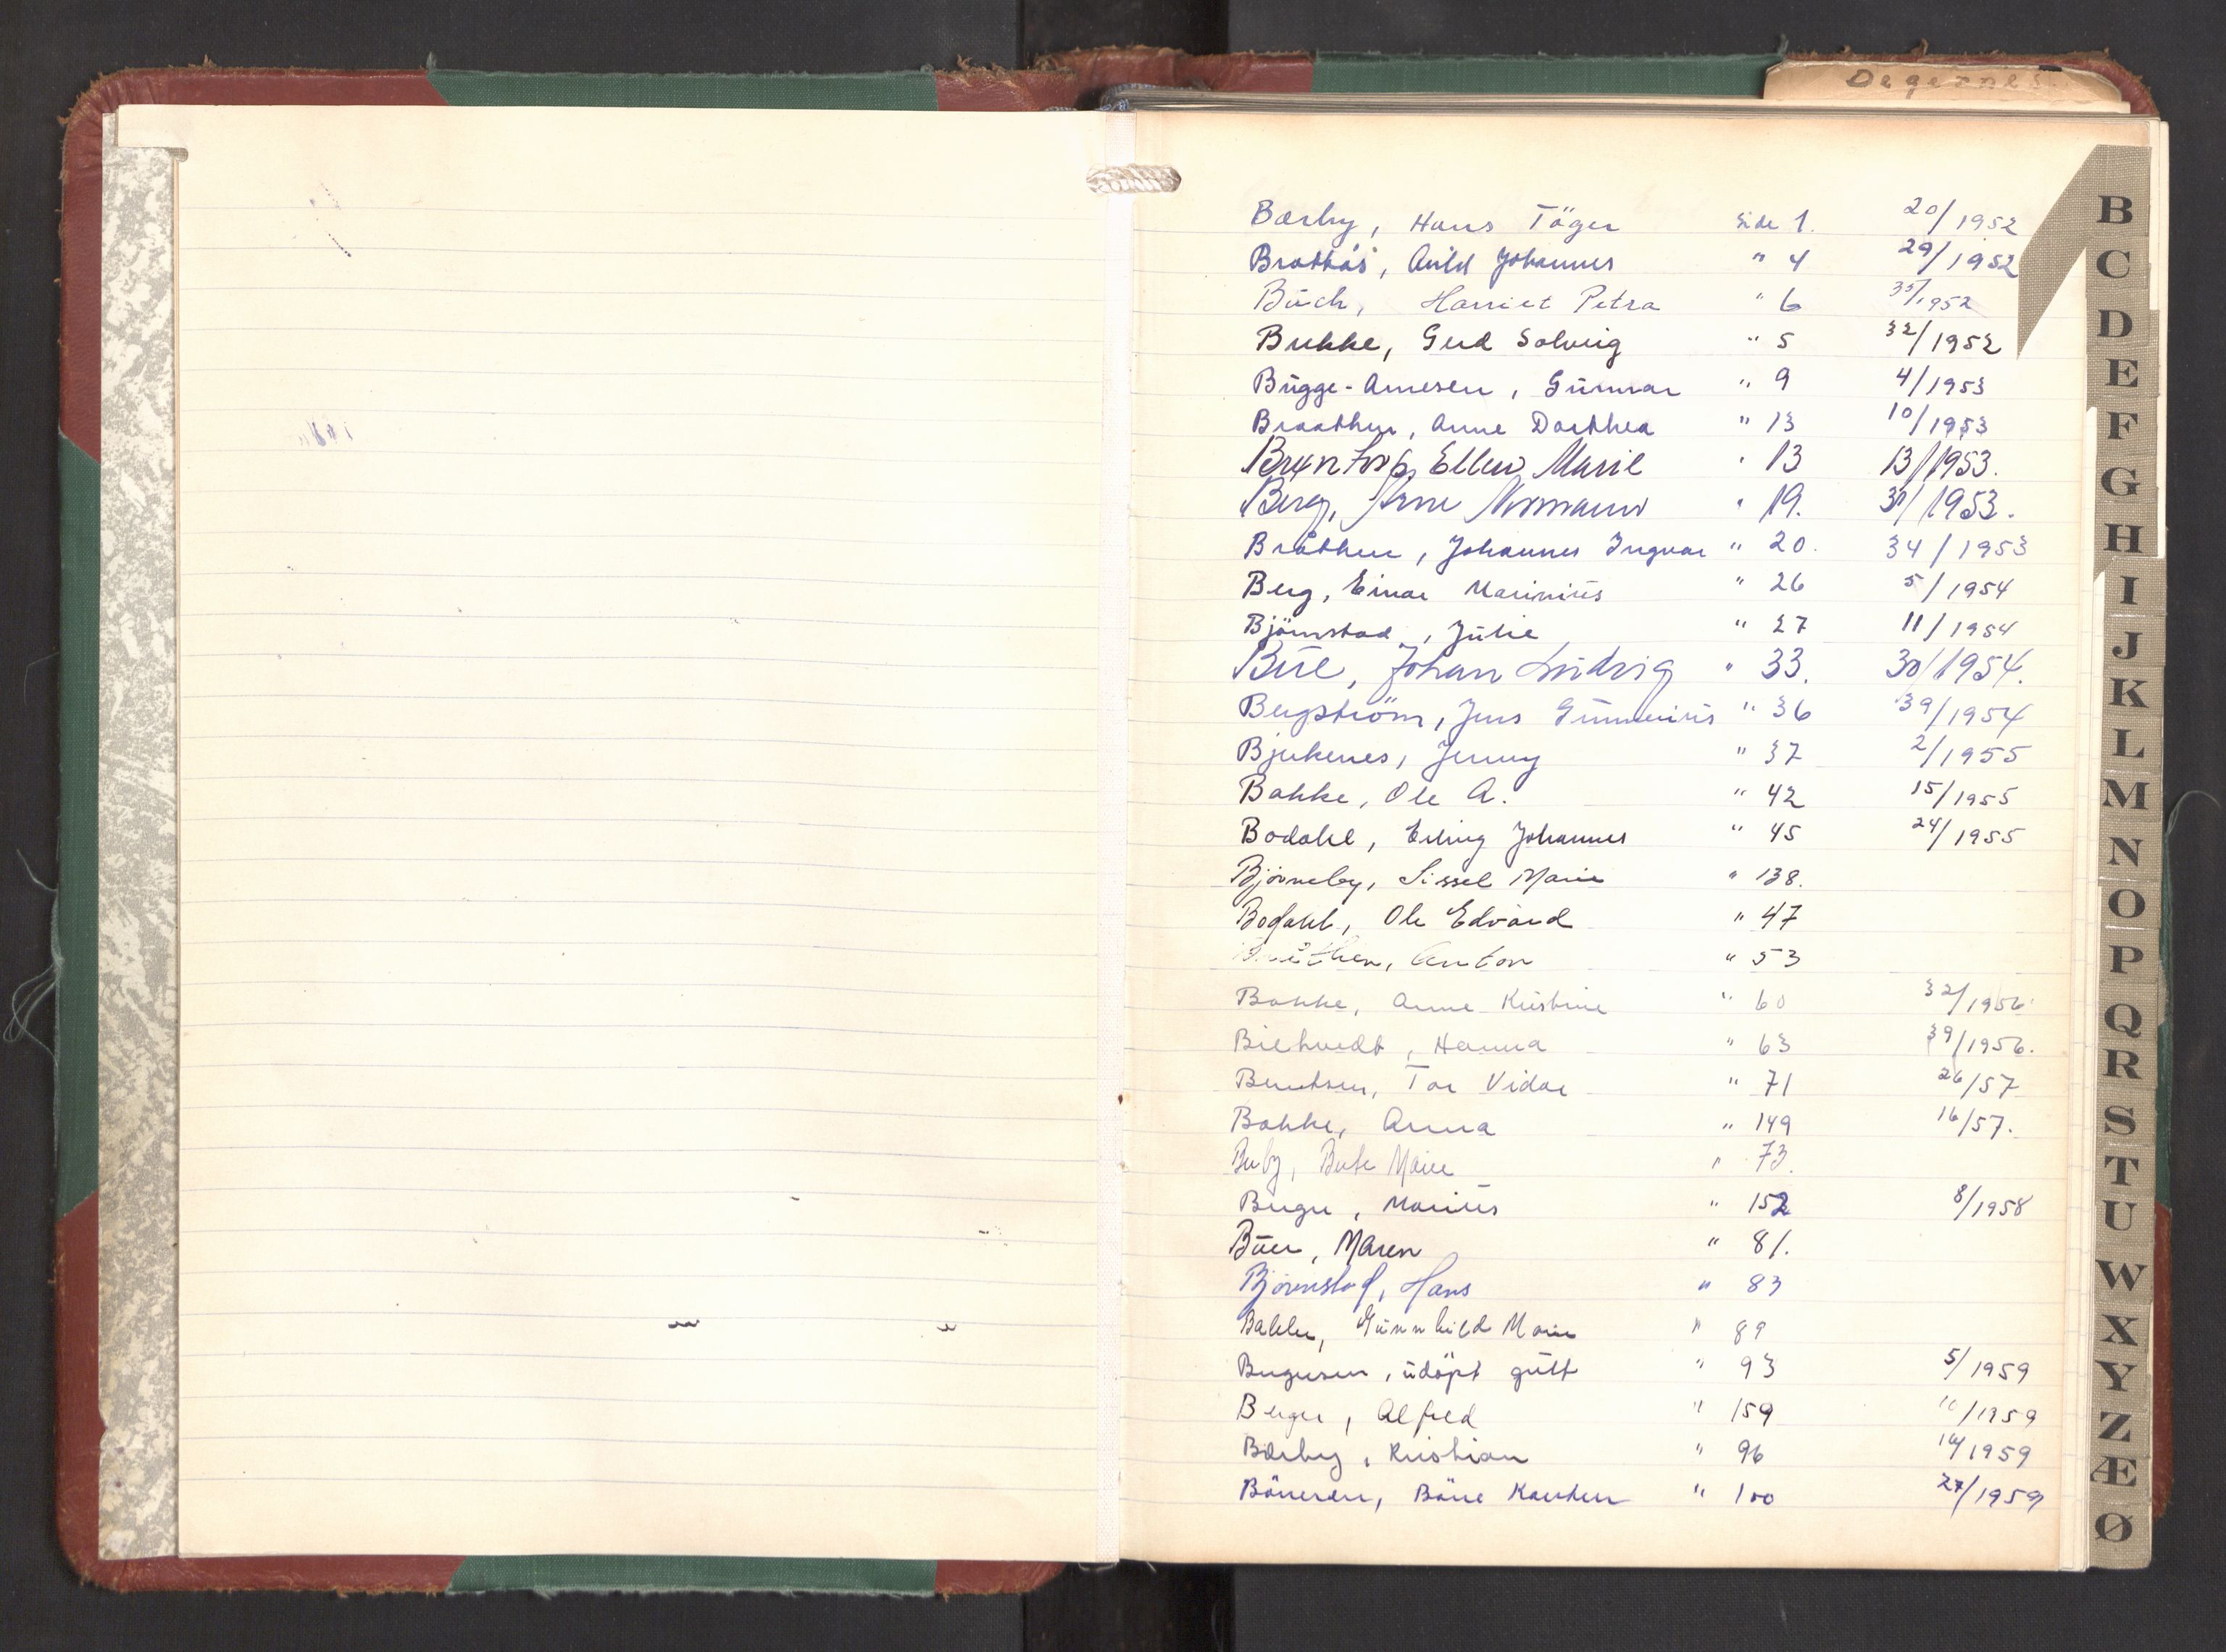 Degernes
Bærby, Hans Töger side 1. 20/1952
Brattås, Arild Johannes " 4 29/1952
Buch, Harriet Petra " 6 35/1952
Bukke, Gerd Solveig " 5 32/1952
Bugge-Arnesen, Gunnar " 9 4/1953
Braathen, Anne Dorthea " 13 10/1953
Ellen Marie " 13 13/1953.
Berg, Arne Normann " 19. 31/1953.
Bråthen, Johannes Ingvar " 20. 34/1953
Berg, Einar Marinius " 26 5/1954
Björnstad, Julie " 27 11/1954
Bue, Johan Ludvig " 33. 30/1954.
Bergström, Jens Gunnerius " 36 39/1954
Bjerkenes, Jenny " 37 2/1955
Bakke, Ole A. " 42 15/1955
Bodahl, Erling Johannes " 45 24/1955
Bjørneby, Sissel Marie " 138.
Bodahl, Ole Edvard " 47
Bråthen, Anton " 53
Bakke, Anne Kristine " 60 32/1956
Hanna " 63 39/1956.
Berntsen, Tor Vidar " 71 26/57
Bakke, Anna " 149 16/57.
Marie " 73.
Berger, Marius " 152 8/1958
Buer, Maren " 81.
Bjørnstad, Hans " 83
Gunnhild Marie " 89
udöpt gutt " 93 5/1959
Berger, Alfred " 159 10/1959
Bærby, Kristian " 96 14/1959
" 100 27/1959
B
C
D
E
F
G
H
I
J
K
L
M
N
O
P
Q
R
S
T
U
W
X
Y
Z
Æ
Ø